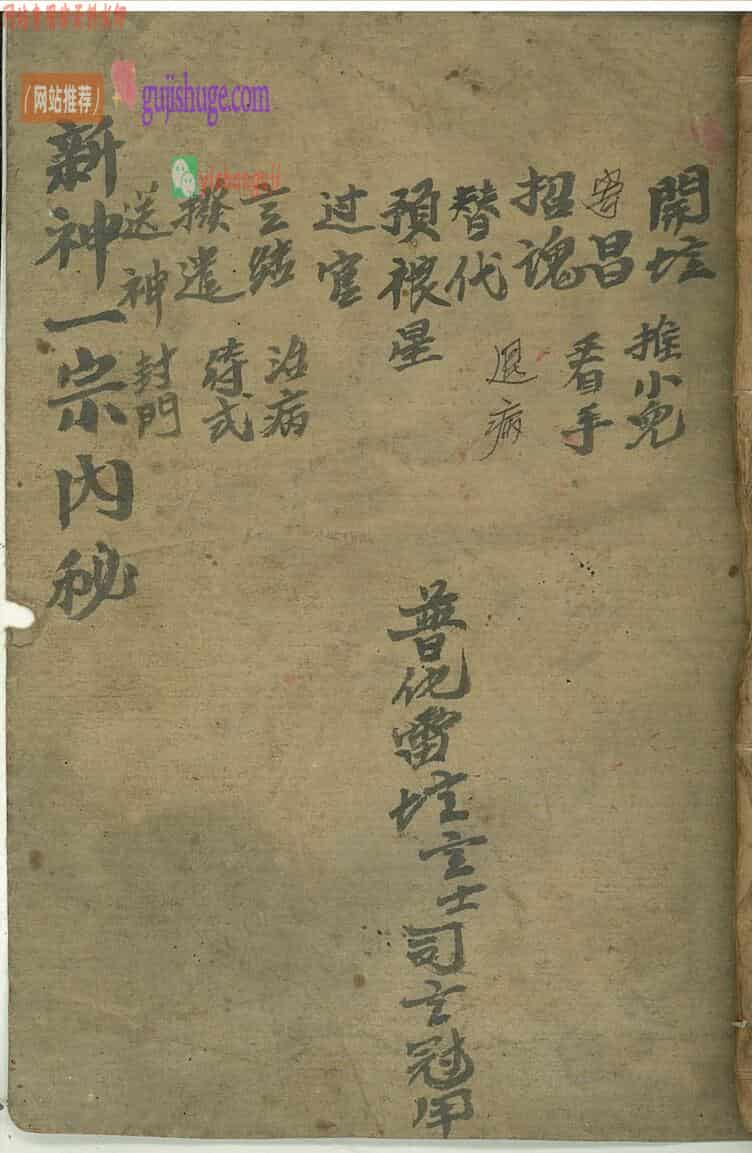 网站推荐
gujishuge.com
開坛 推小兒
昌 看手
招魂
替代 退病
預禳星
过官
言結 治病
撥遣 符式
送神 封門
新神一宗内秘
普化雷坛玄士司玄冠用